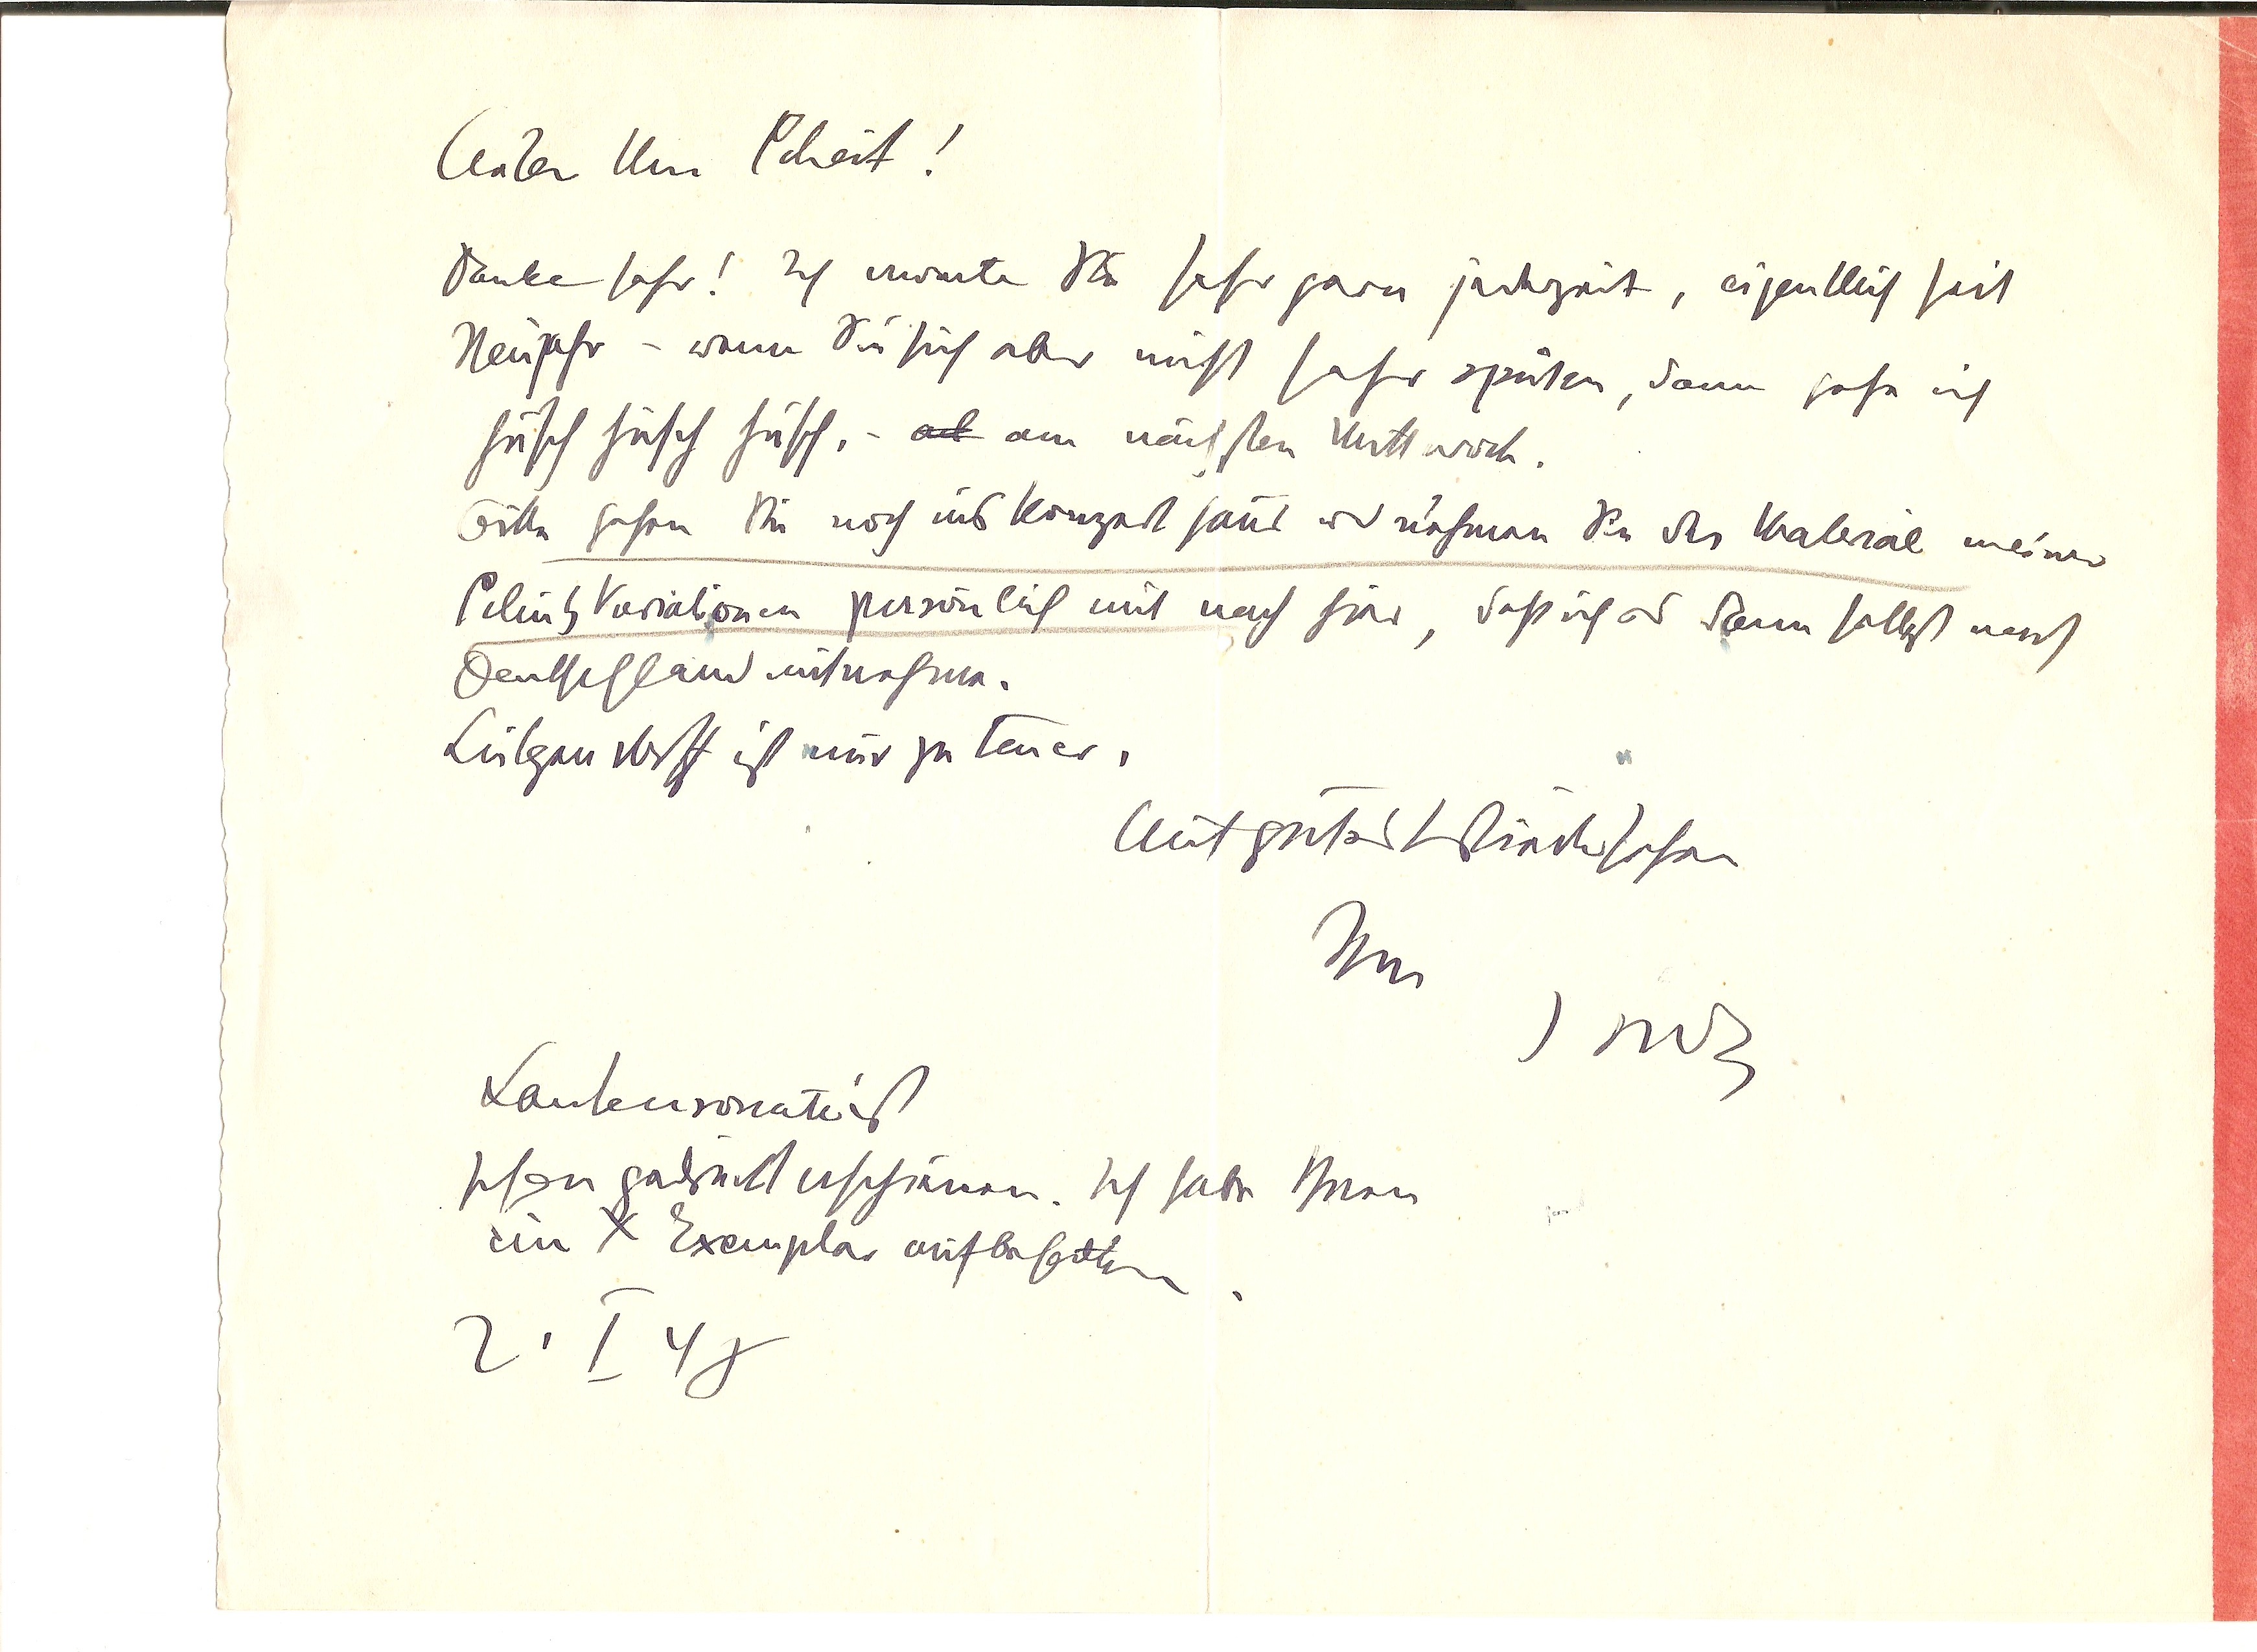 Lieber Herr Scheit!
Danke sehr! Ich erwarte Sie sehr gern jederzeit, eigentlich seit
Neujahr - wenn Sie sich aber nicht sehr sputen, dann gehe ich
husch husch husch, - am nächsten Mittwoch.
Bitte gehen Sie noch ins Konzerthaus und nehmen Sie das Material meiner
Schütz Variationen persönlich mit nach hier, daß ich es dann selbst nach
Deutschland mitnehme.
ist mir zu teuer.
Auf gutes Wiedersehen
Ihr
Lautensonate ist
schon gedruckt erschienen. Ich habe Ihnen
ein Exemplar aufbehalten.
2. I 48